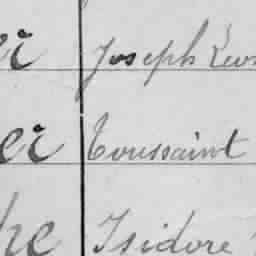 er Joseph Léon
er Toussaint
he Isidore